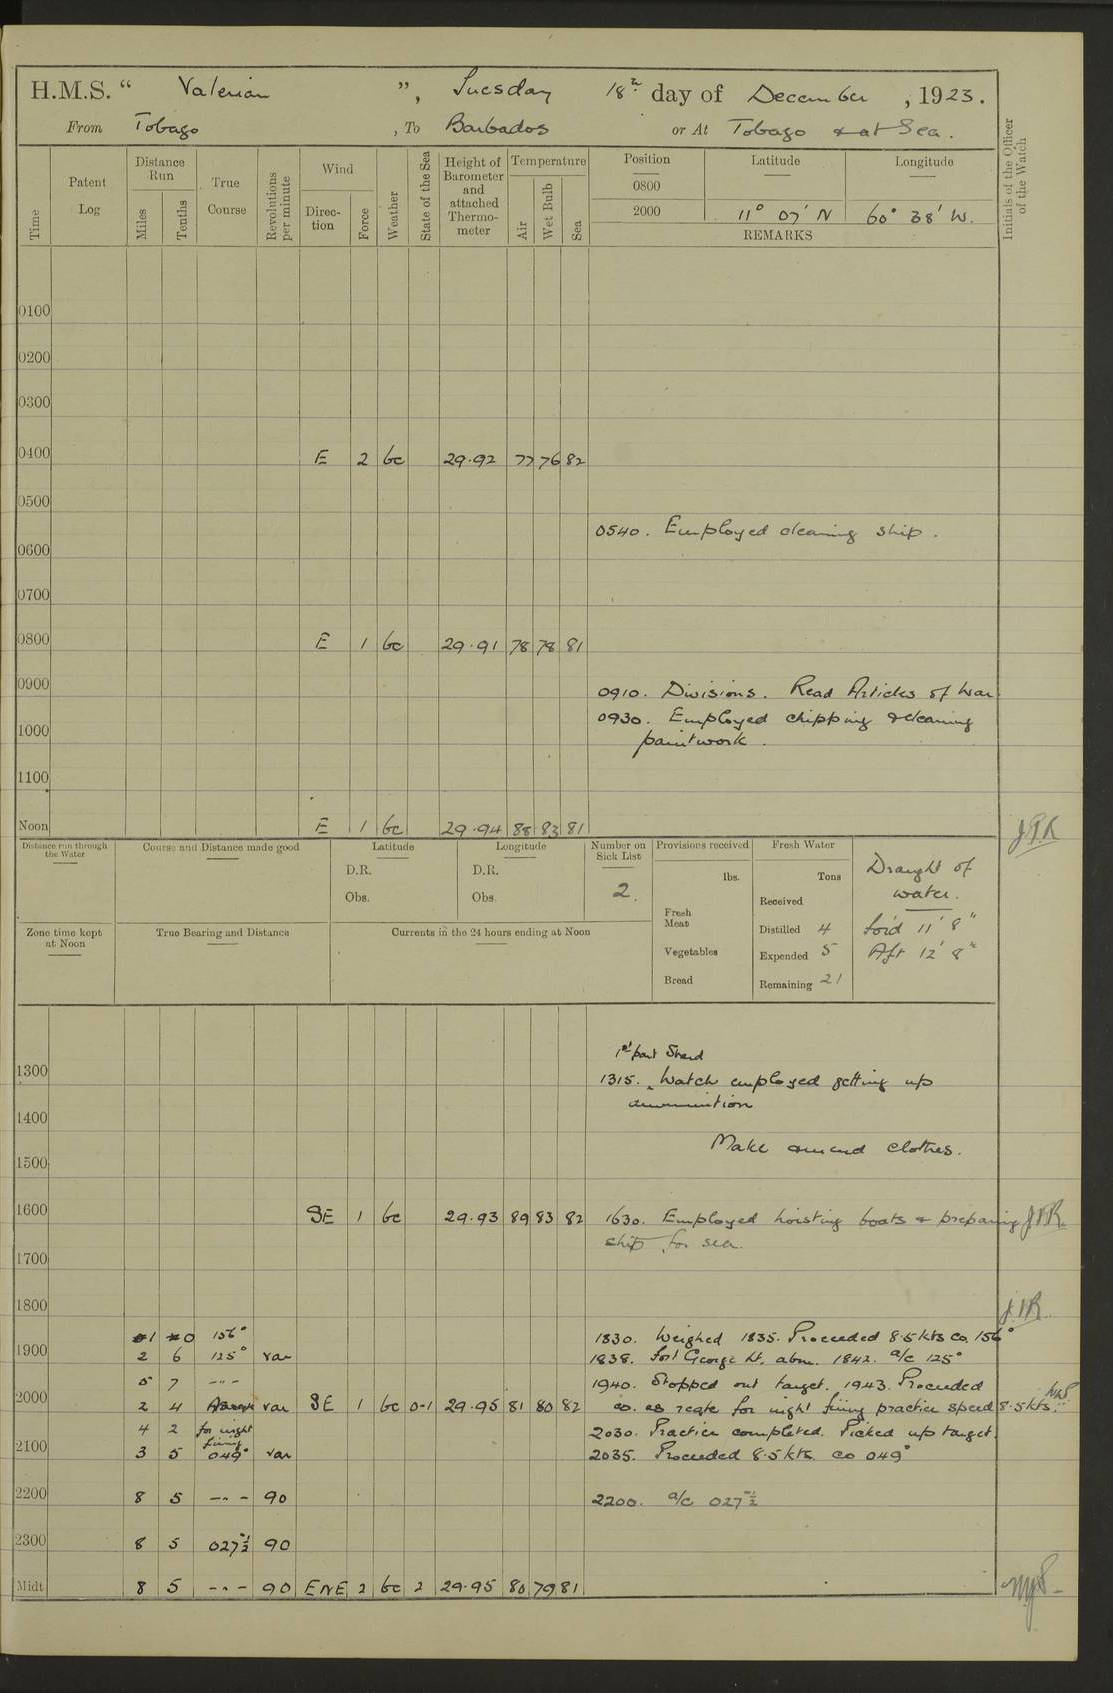 H.M.S. " Valerian ", Tuesday 18th day of December, 1923.
From Tobago, To Barbados or At Tobago & at Sea.
Time
Patent Log
Distance Run
Miles
Tenths
True Course
Revolutions per minute
Wind
Direction
Force
Weather
State of the Sea
Height of Barometer and attached Thermometer
Temperature
Air
Wet Bulb
Sea
Position Latitude Longitude
0800
2000 11° 07' N 60° 38' W.
REMARKS
Initials of the Officer of the Watch
0100
0200
0300
0400 E 2 bc 29.92 77 76 82
0500
0540. Employed cleaning ship.
0600
0700
0800 E 1 bc 29.91 78 78 81
0900
0910. Divisions. Read Articles of War
0930. Employed chipping & cleaning
paintwork.
1000
1100
Noon E 1 bc 29.94 88 83 81
Distance run through the Water
Course and Distance made good
Latitude
D.R.
Obs.
Longitude
D.R.
Obs.
Number on Sick List
2.
Provisions received
lbs.
Fresh Meat
Vegetables
Bread
Fresh Water
Tons
Received
Distilled 4
Expended 5
Remaining 21
Draught of
water.
for'd 11' 8"
Aft 12' 8"
Zone time kept at Noon
True Bearing and Distance
Currents in the 24 hours ending at Noon
1st part
1300
1315. Watch employed getting up
ammunition
1400
Make & mend clothes.
1500
1600 SE 1 bc 29.93 89 83 82 1630. Employed hoisting boats & preparing
ship for sea.
1700
1800
1 0 156° 1830. Weighed 1835. Proceeded 8.5 kts co. 156°
1900 2 6 125° var 1838. Fort George Lt. abm. 1842. a/c 125°
5 7 -"- 1940. Stopped out target. 1943. Proceeded
2000 2 4 var SE 1 bc 0-1 29.95 81 80 82 co. as reqte for night firing practice speed 8.5 kts.
4 2 for night firing 2030. Practice completed. Picked up target.
2100 3 5 049° var 2035. Proceeded 8.5 kts. co 049°
2200 8 5 -"- 90 2200. a/c 027½°
2300 8 5 027½° 90
Midt 8 5 -"- 90 ENE 2 bc 2 29.95 80 79 81